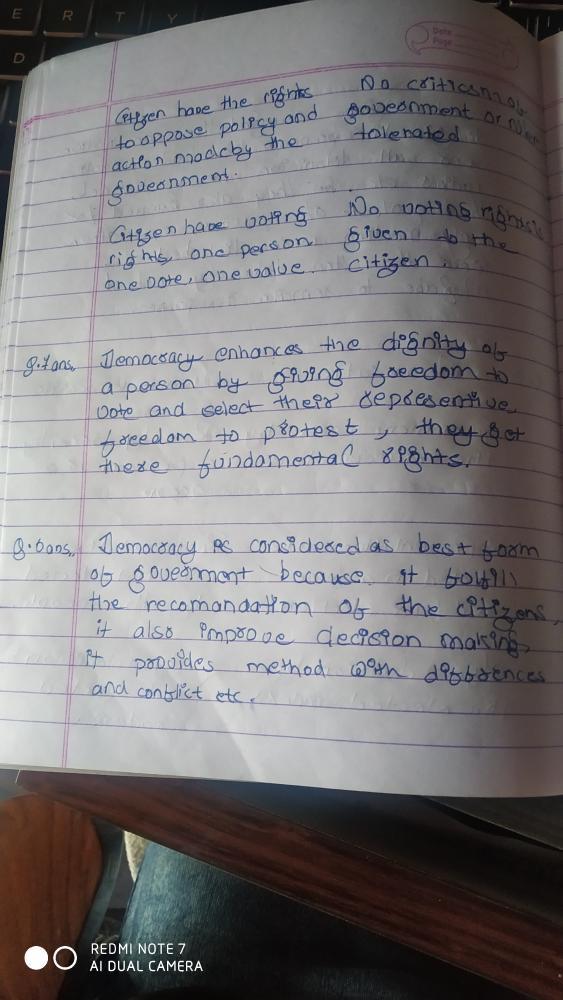 E R T Y
D
Date
Page
Citizen have the rights
to oppose policy and
action madeby the
government.
No criticism of
government or ruler
tolerated
Citizen have voting
rights, one person
one vote, one value.
No voting rights is
given to the
citizen
Q.7ans. Democracy enhances the dignity of
a person by giving freedom to
vote and select their representive,
freedom to protest, they get
there fundamental rights.
Q.6ans. Democracy is considered as best form
of government because it fulfill
the recomandation of the citizens,
it also improve decision making,
it provides method with diffrences
and conflict etc.
REDMI NOTE 7
AI DUAL CAMERA